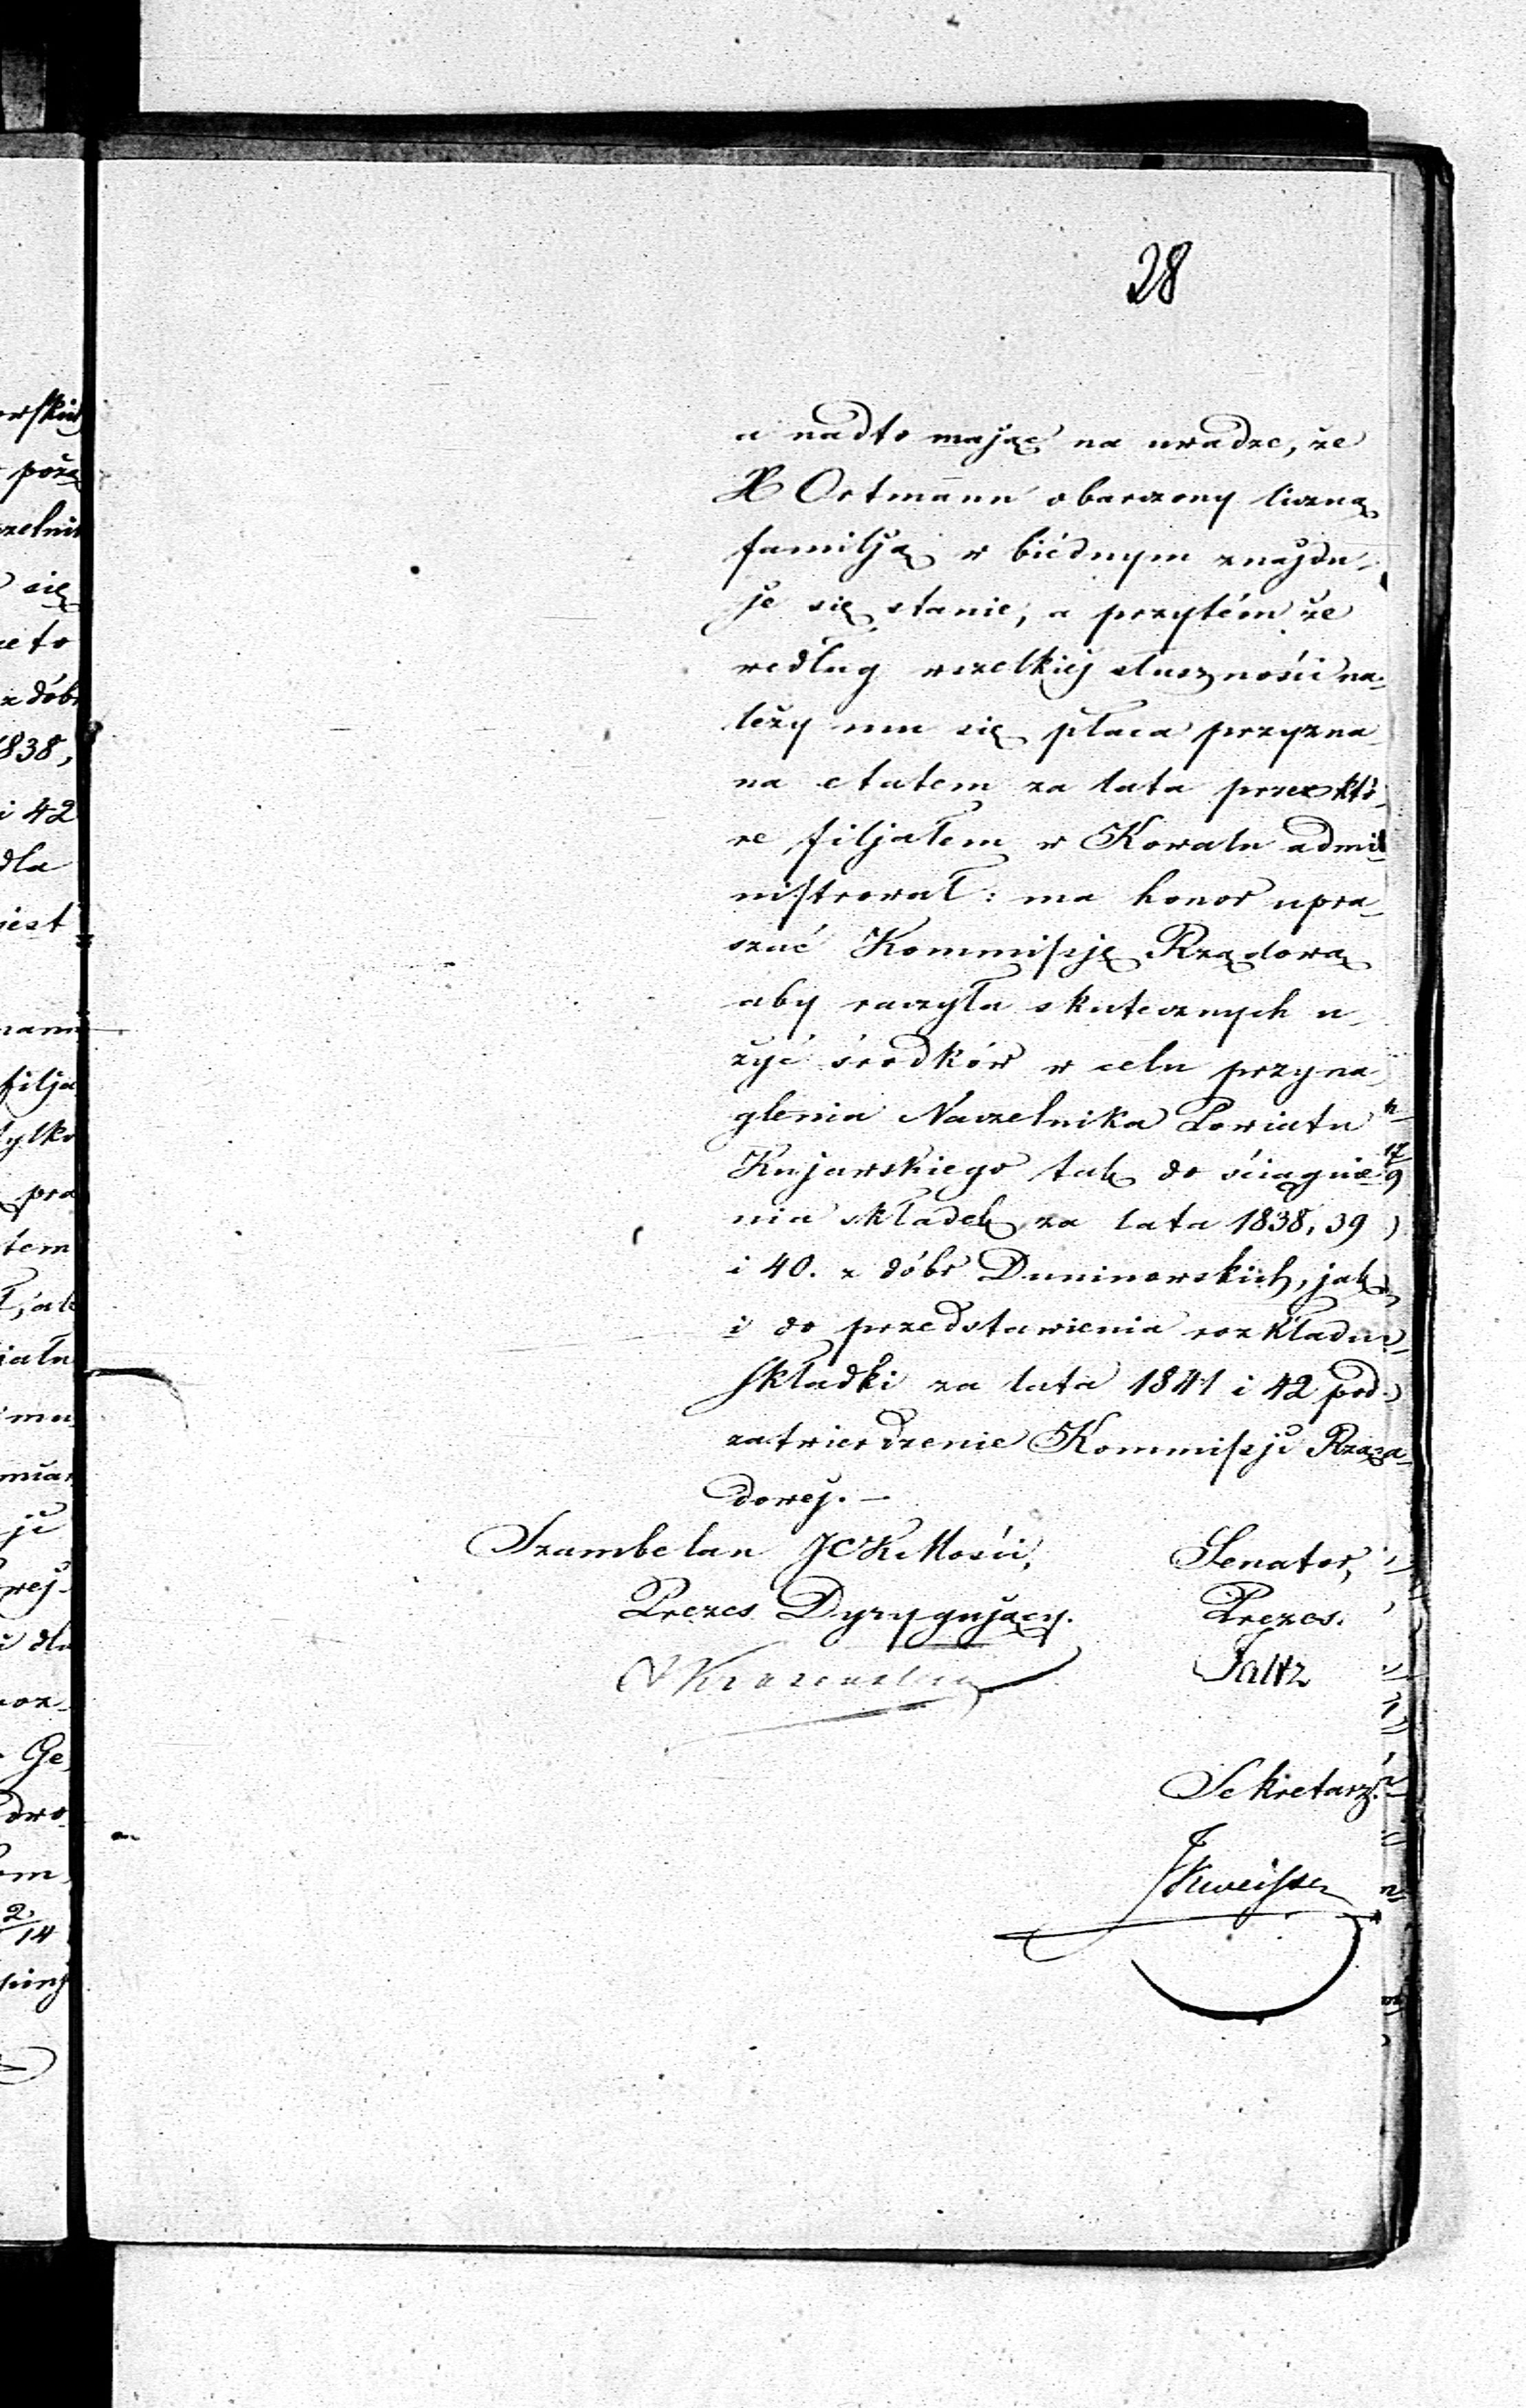 28
a nadto mając na uwadze, że
X Ortmann obarczony liczną
familją w biédnym znajdu-
je się stanie, a przytém że
według wszelkiéj słuszności na-
leży mu się płaca przyzna-
na etatem za lata przez któ-
re filjałem w Kowalu admi-
nistrował: ma honor upra-
szać Kommissję Rządową
aby raczyła skutecznych u-
żyć środków w celu przyna-
glenia Naczelnika Powiatu
Kujawskiego tak do ściągnie-
nia składek za lata 1838, 39
i 40. z dóbr Duninowskich, jak
i do przedstawienia rozkładu
składki za lata 1841 i 42 pod
zatwierdzenie Kommissji Rzą-
dowéj. —
Szambelan JCK Mości, Senator,
Prezes Dyrygujący. Prezes.
Sekretarz.